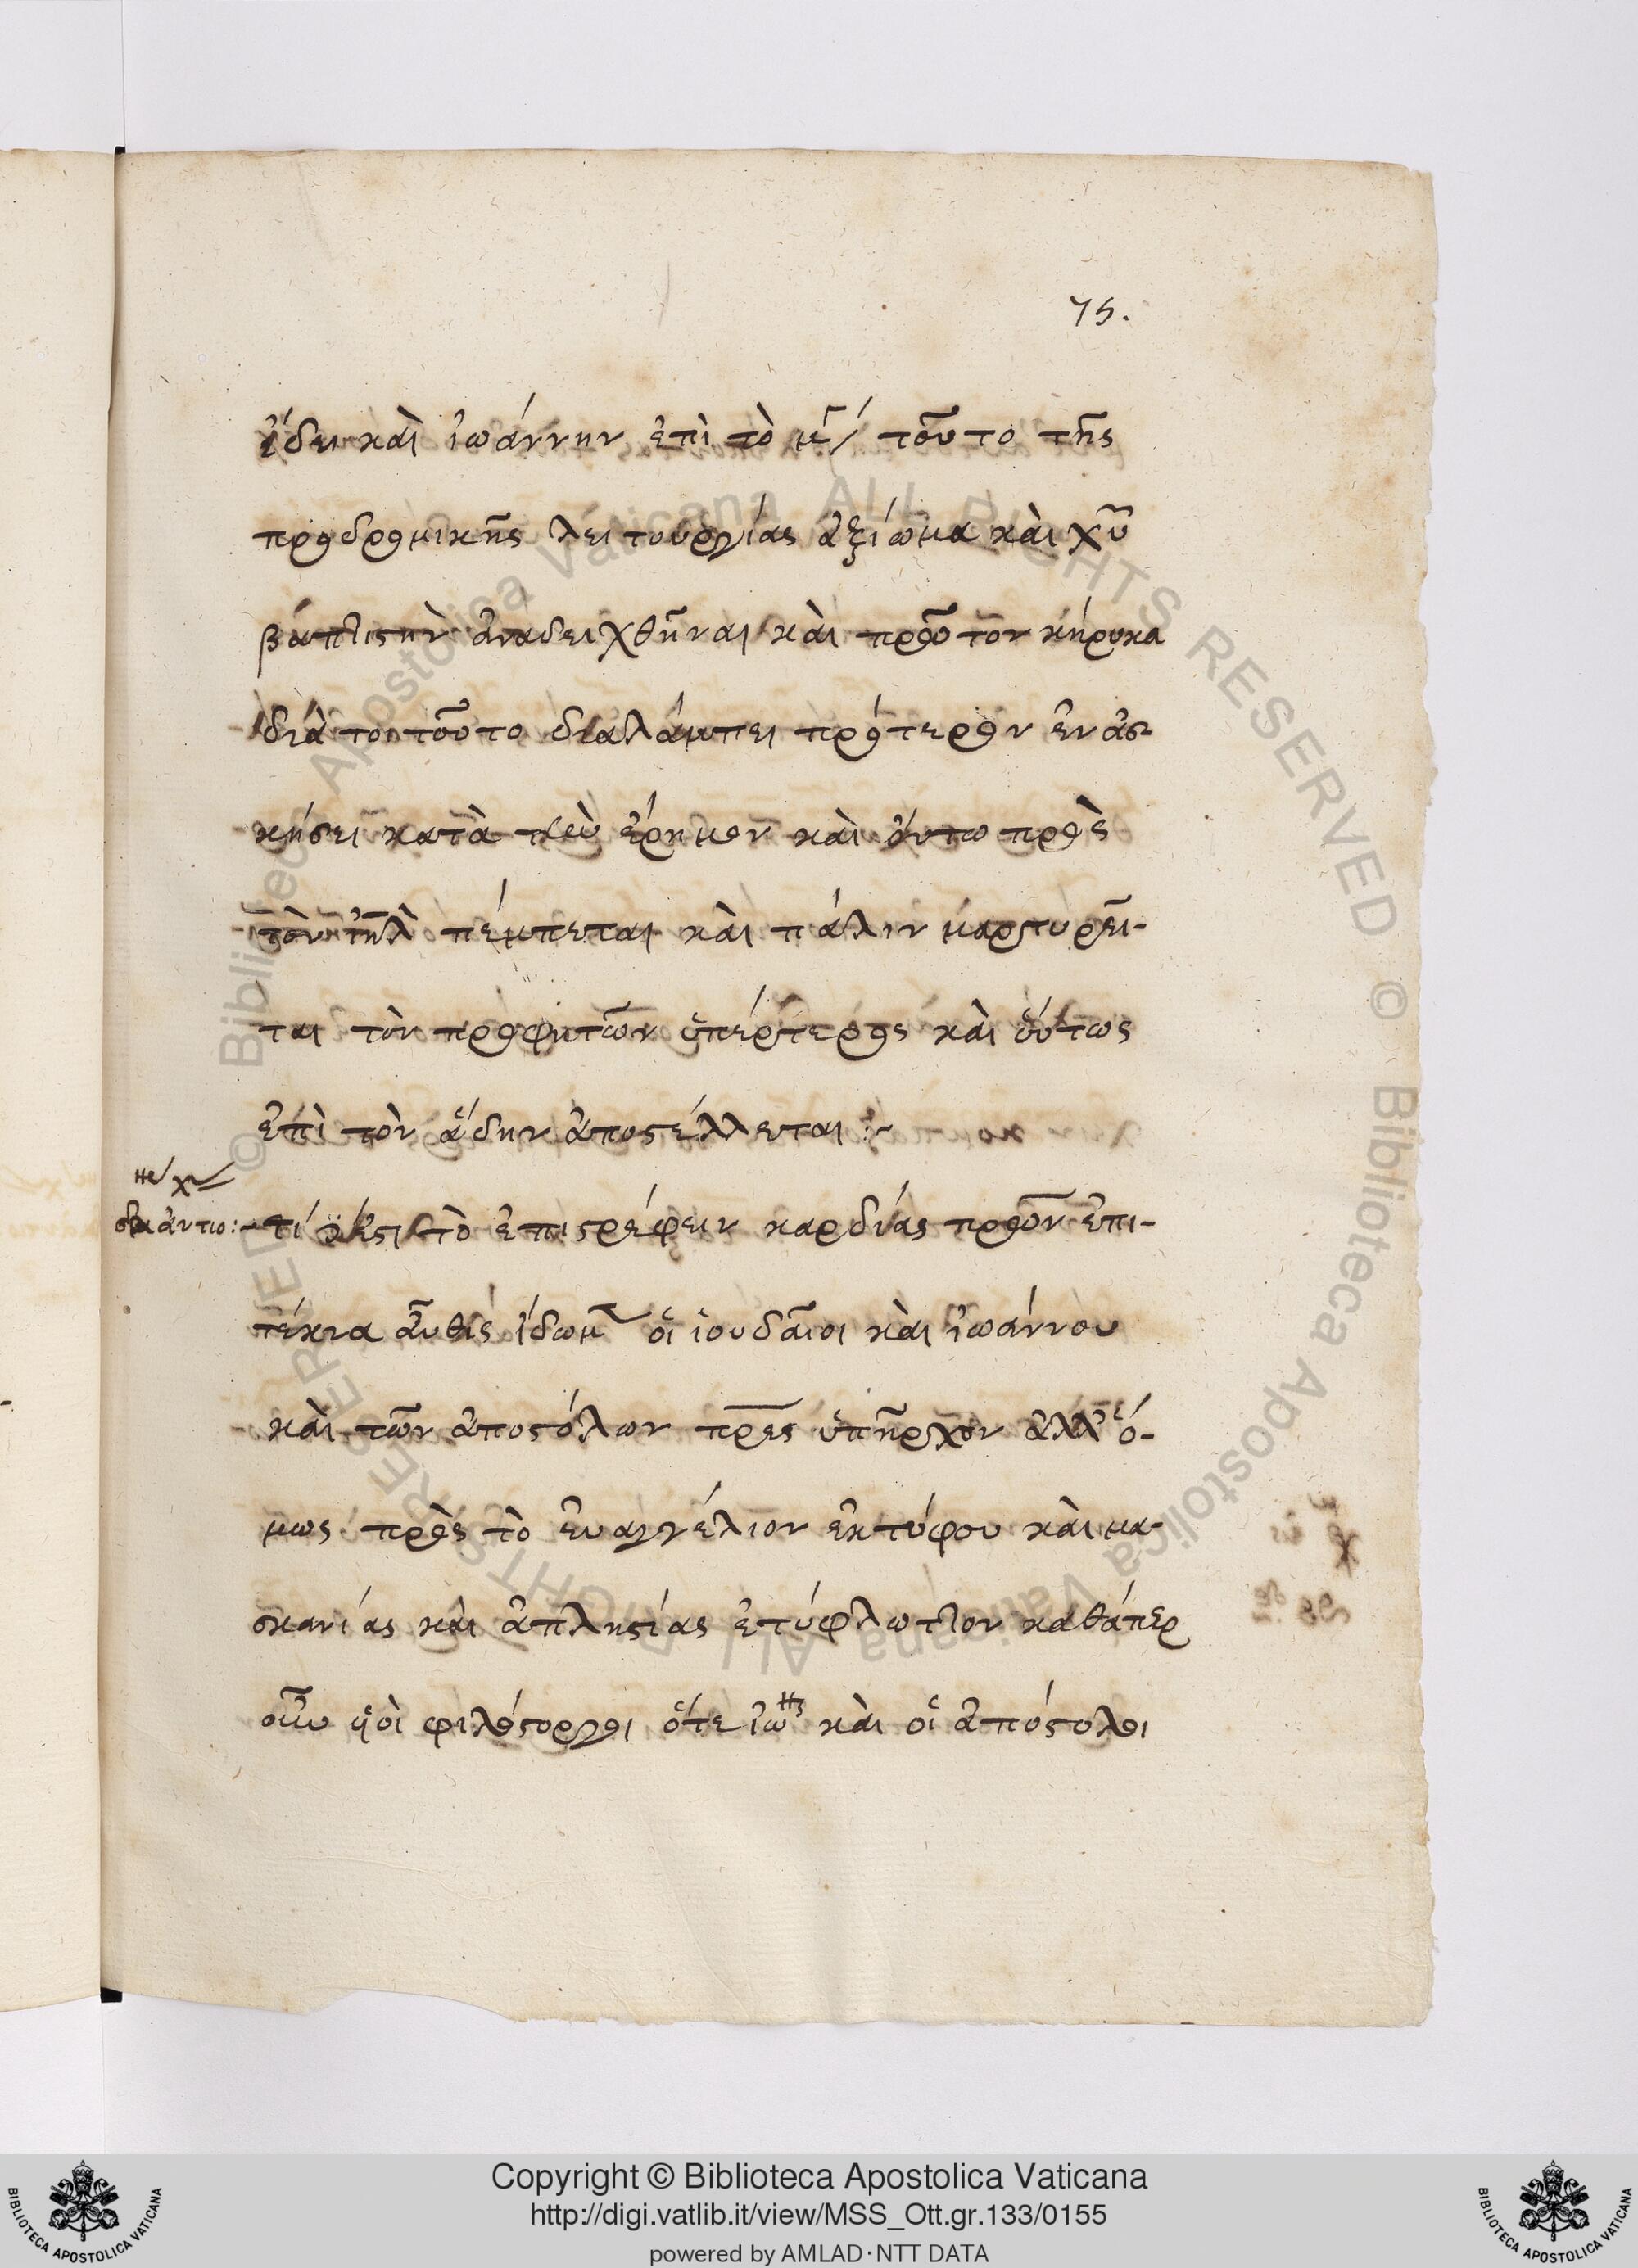 75.
ἔδει καὶ ἰωάννην ἐπὶ τὸ μέ/ τοῦτο τῆς
προδρομικῆς λειτουργίας ἀξίωμα καὶ χῦ
βάπτιστὴν ἀναδειχθῆναι καὶ πρῶτον κήρυκα
διὰ τοῦτο διαλάμπει πρότερον ἐν ἀσ
κήσει κατὰ τὴν ἔρημον καὶ οὕτω πρὸς
τὸν ἰηλ πέμπεται καὶ πάλιν μαρτυρεῖ-
ται τὸν προφητῶν ὑπέρτερος καὶ οὕτως
ἐπὶ τὸν ἅδην ἀποστέλλεται :~
τί ἐστι τὸ ἐπιστρέφειν καρδίας πρῶν ἐπι-
τέκνα αὖθις ἴδωμ οἱ ἰουδαῖοι καὶ ἰωάννου
καὶ τῶν ἀποστόλων πρες ὑπῆρχον ἀλλ' ὅ-
μως πρὸς τὸ εὐαγγέλιον ἐκ τύφου καὶ μα-
σκανίας καὶ ἀπληστίας ἐτύφλωττον καθάπερ
οὖν οἱ φιλόστοργοι ὅτε ἰωης καὶ οἱ ἀπόστολοι
Copyright © Biblioteca Apostolica Vaticana
http://digi.vatlib.it/view/MSS_Ott.gr.133/0155
powered by AMLAD·NTT DATA
BIBLIOTECA APOSTOLICA VATICANA
BIBLIOTECA APOSTOLICA VATICANA
© Biblioteca Apostolica Vaticana ALL RIGHTS RESERVED
© Biblioteca Apostolica Vaticana ALL RIGHTS RESERVED